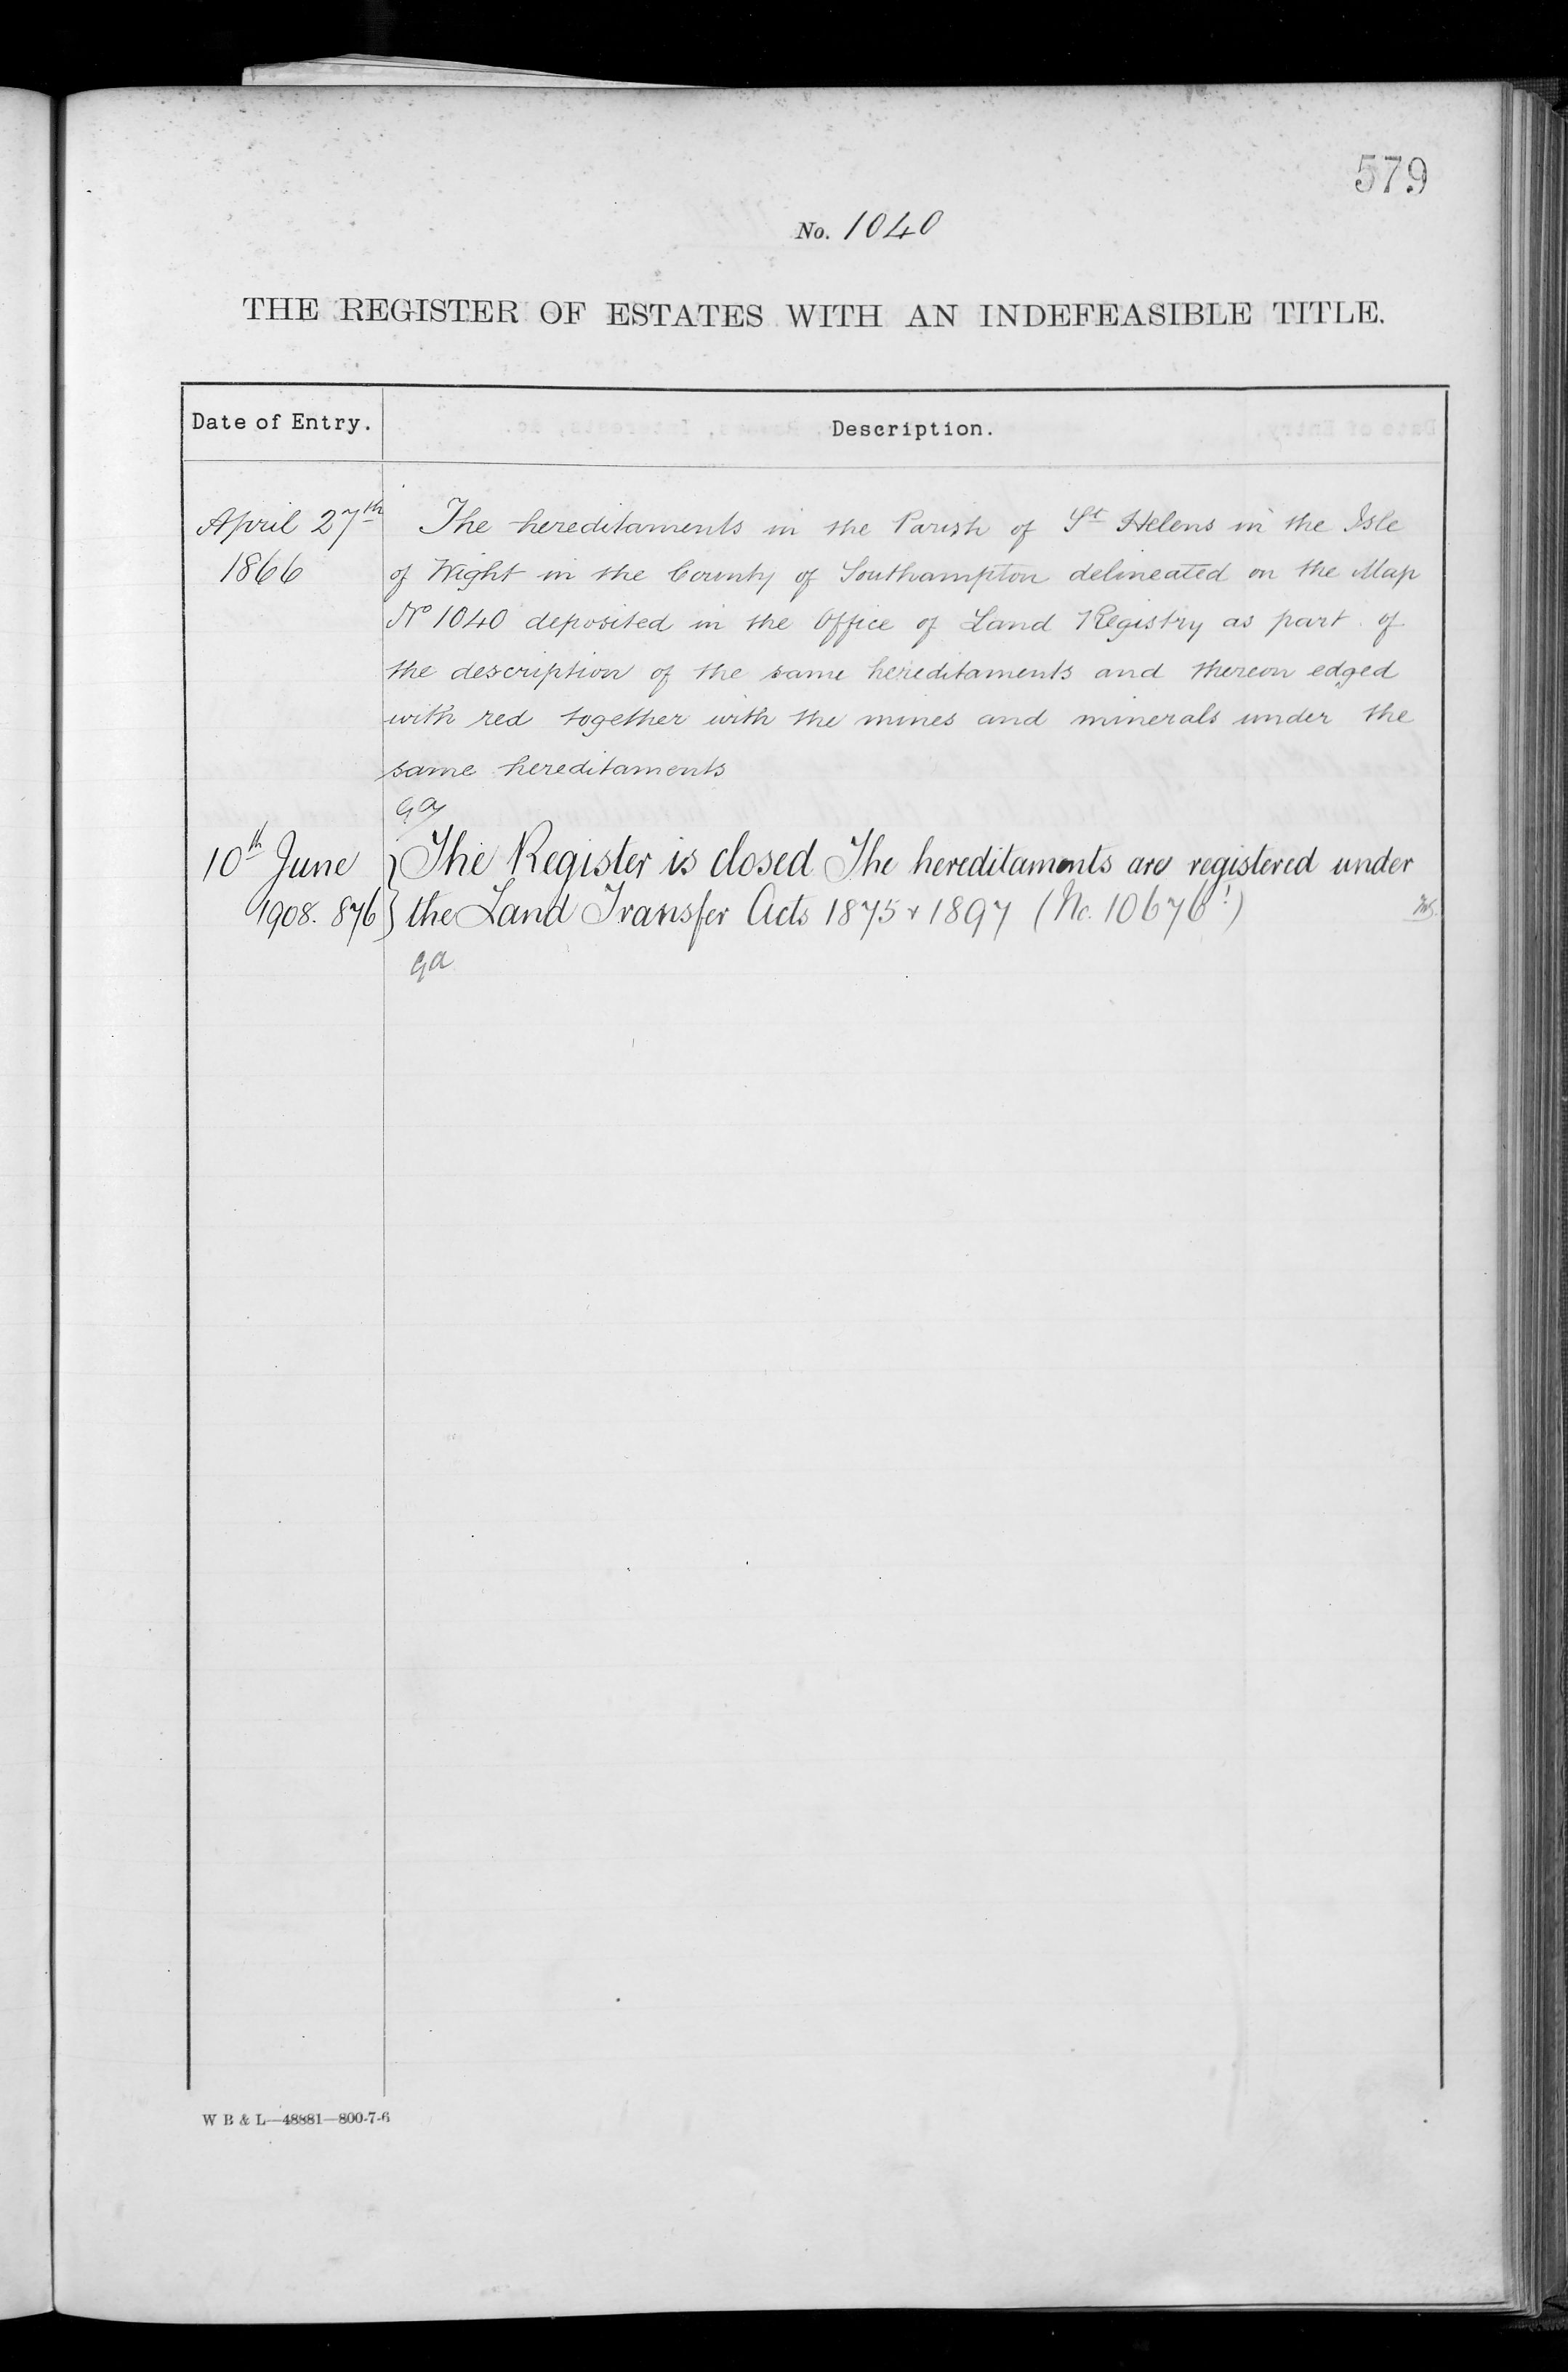 579
No. 1040
THE REGISTER OF ESTATES WITH AN INDEFEASIBLE TITLE.
Date of Entry. Description.
April 27th The hereditaments in the Parish of St Helens in the Isle
1866 of Wight in the County of Southampton delineated on the Map
No 1040 deposited in the Office of Land Registry as part of
the description of the same hereditaments and thereon edged
with red together with the mines and minerals under the
same hereditaments
10th June } The Register is closed The hereditaments are registered under
1908. 876 } the Land Transfer Acts 1875 & 1897 (No. 10676)
ga
W B & L—48881—800-7-6